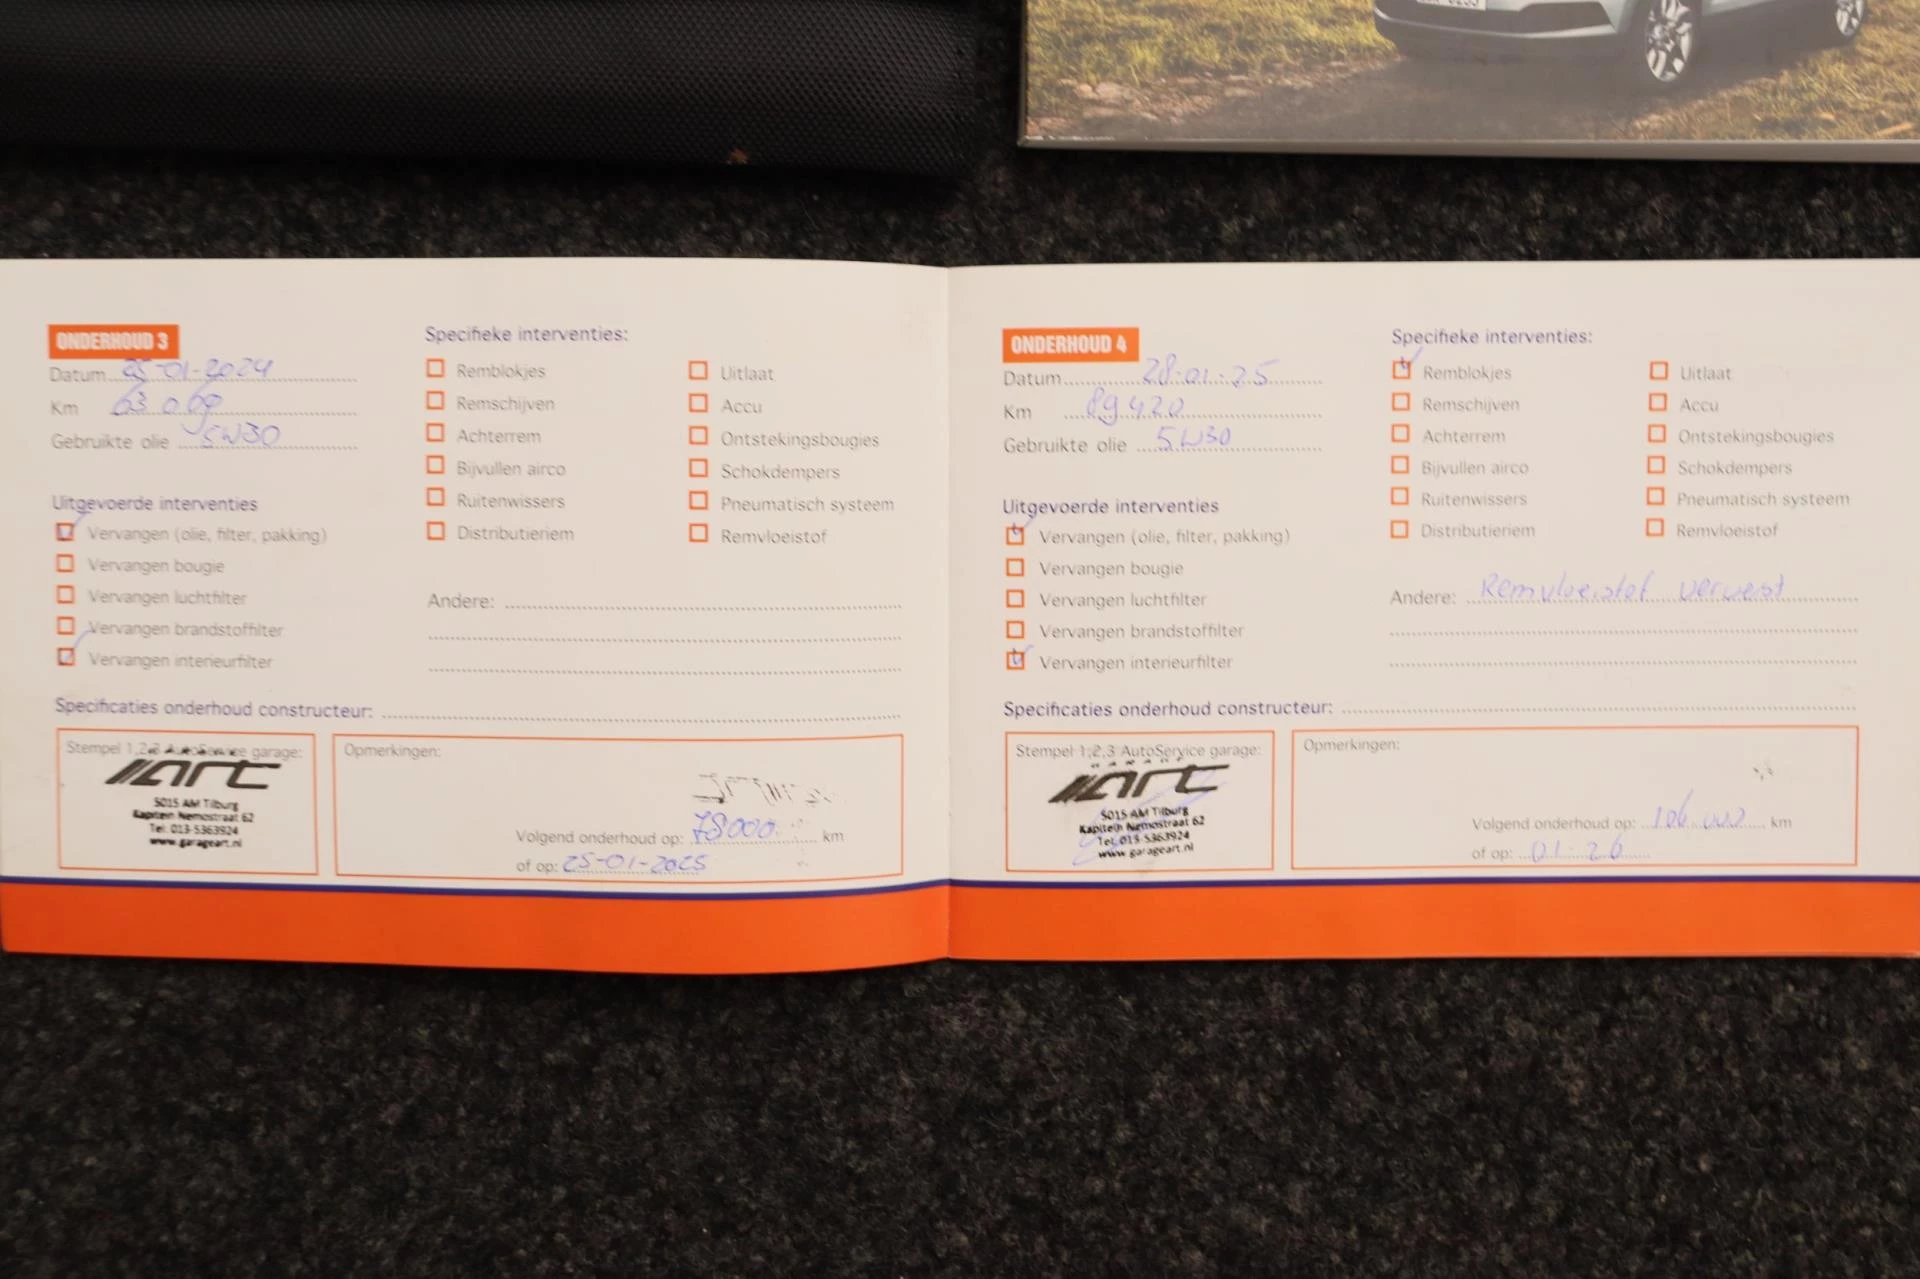 ONDERHOUD 3
Datum 25-01-2024
Km 63 069
Gebruikte olie 5W30
Uitgevoerde interventies
Vervangen (olie, filter, pakking)
Vervangen bougie
Vervangen luchtfilter
Vervangen brandstoffilter
Vervangen interieurfilter
Specifieke interventies:
Remblokjes
Remschijven
Achterrem
Bijvullen airco
Ruitenwissers
Distributieriem
Uitlaat
Accu
Ontstekingsbougies
Schokdempers
Pneumatisch systeem
Remvloeistof
Andere:
Specificaties onderhoud constructeur:
Stempel 1,2,3 AutoService garage:
art
5015 AM Tilburg
Kapitein Nemostraat 62
Tel: 013-5363924
www.garageart.nl
Opmerkingen:
Volgend onderhoud op: 78000 km
of op: 25-01-2025
ONDERHOUD 4
Datum 28-01-25
Km 89 420
Gebruikte olie 5W30
Uitgevoerde interventies
Vervangen (olie, filter, pakking)
Vervangen bougie
Vervangen luchtfilter
Vervangen brandstoffilter
Vervangen interieurfilter
Specifieke interventies:
Remblokjes
Remschijven
Achterrem
Bijvullen airco
Ruitenwissers
Distributieriem
Uitlaat
Accu
Ontstekingsbougies
Schokdempers
Pneumatisch systeem
Remvloeistof
Andere: Remvloeistof ververst
Specificaties onderhoud constructeur:
Stempel 1,2,3 AutoService garage:
GARAGE
art
5015 AM Tilburg
Kapitein Nemostraat 62
Tel: 013-5363924
www.garageart.nl
Opmerkingen:
Volgend onderhoud op: 106 000 km
of op: 01-26